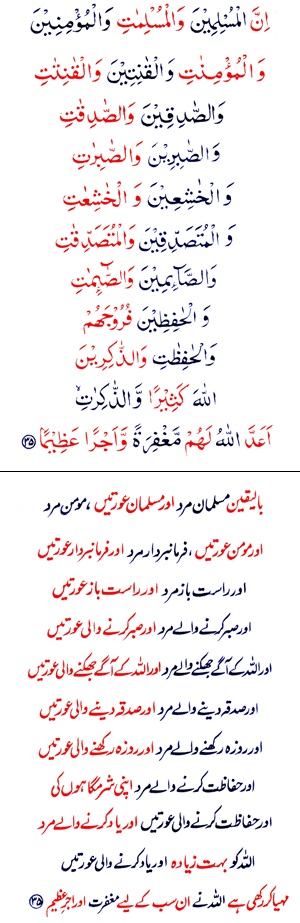 اِنَّ الْمُسْلِمِيْنَ وَالْمُسْلِمٰتِ وَالْمُؤْمِنِيْنَ
وَالْمُؤْمِنٰتِ وَالْقٰنِتِيْنَ وَالْقٰنِتٰتِ
وَالصّٰدِقِيْنَ وَالصّٰدِقٰتِ
وَالصّٰبِرِيْنَ وَالصّٰبِرٰتِ
وَالْخٰشِعِيْنَ وَالْخٰشِعٰتِ
وَالْمُتَصَدِّقِيْنَ وَالْمُتَصَدِّقٰتِ
وَالصَّآئِمِيْنَ وَالصّٰٓئِمٰتِ
وَالْحٰفِظِيْنَ فُرُوْجَهُمْ
وَالْحٰفِظٰتِ وَالذّٰكِرِيْنَ
اللّٰهَ كَثِيْرًا وَّالذّٰكِرٰتِۙ
اَعَدَّ اللّٰهُ لَهُمْ مَّغْفِرَةً وَّاَجْرًا عَظِيْمًا ۳۵
بالیقین مسلمان مرد اور مسلمان عورتیں ، مومن مرد
اور مومن عورتیں ، فرمانبردار مرد اور فرمانبردار عورتیں
اور راست باز مرد اور راست باز عورتیں
اور صبر کرنے والے مرد اور صبر کرنے والی عورتیں
اور اللہ کے آگے جھکنے والے مرد اور اللہ کے آگے جھکنے والی عورتیں
اور صدقہ دینے والے مرد اور صدقہ دینے والی عورتیں
اور روزہ رکھنے والے مرد اور روزہ رکھنے والی عورتیں
اور حفاظت کرنے والے مرد اپنی شرمگاہوں کی
اور حفاظت کرنے والی عورتیں اور یاد کرنے والے مرد
اللہ کو بہت زیادہ اور یاد کرنے والی عورتیں
مہیا کر رکھی ہے اللہ نے ان سب کے لیے مغفرت اور اجر عظیم ۳۵